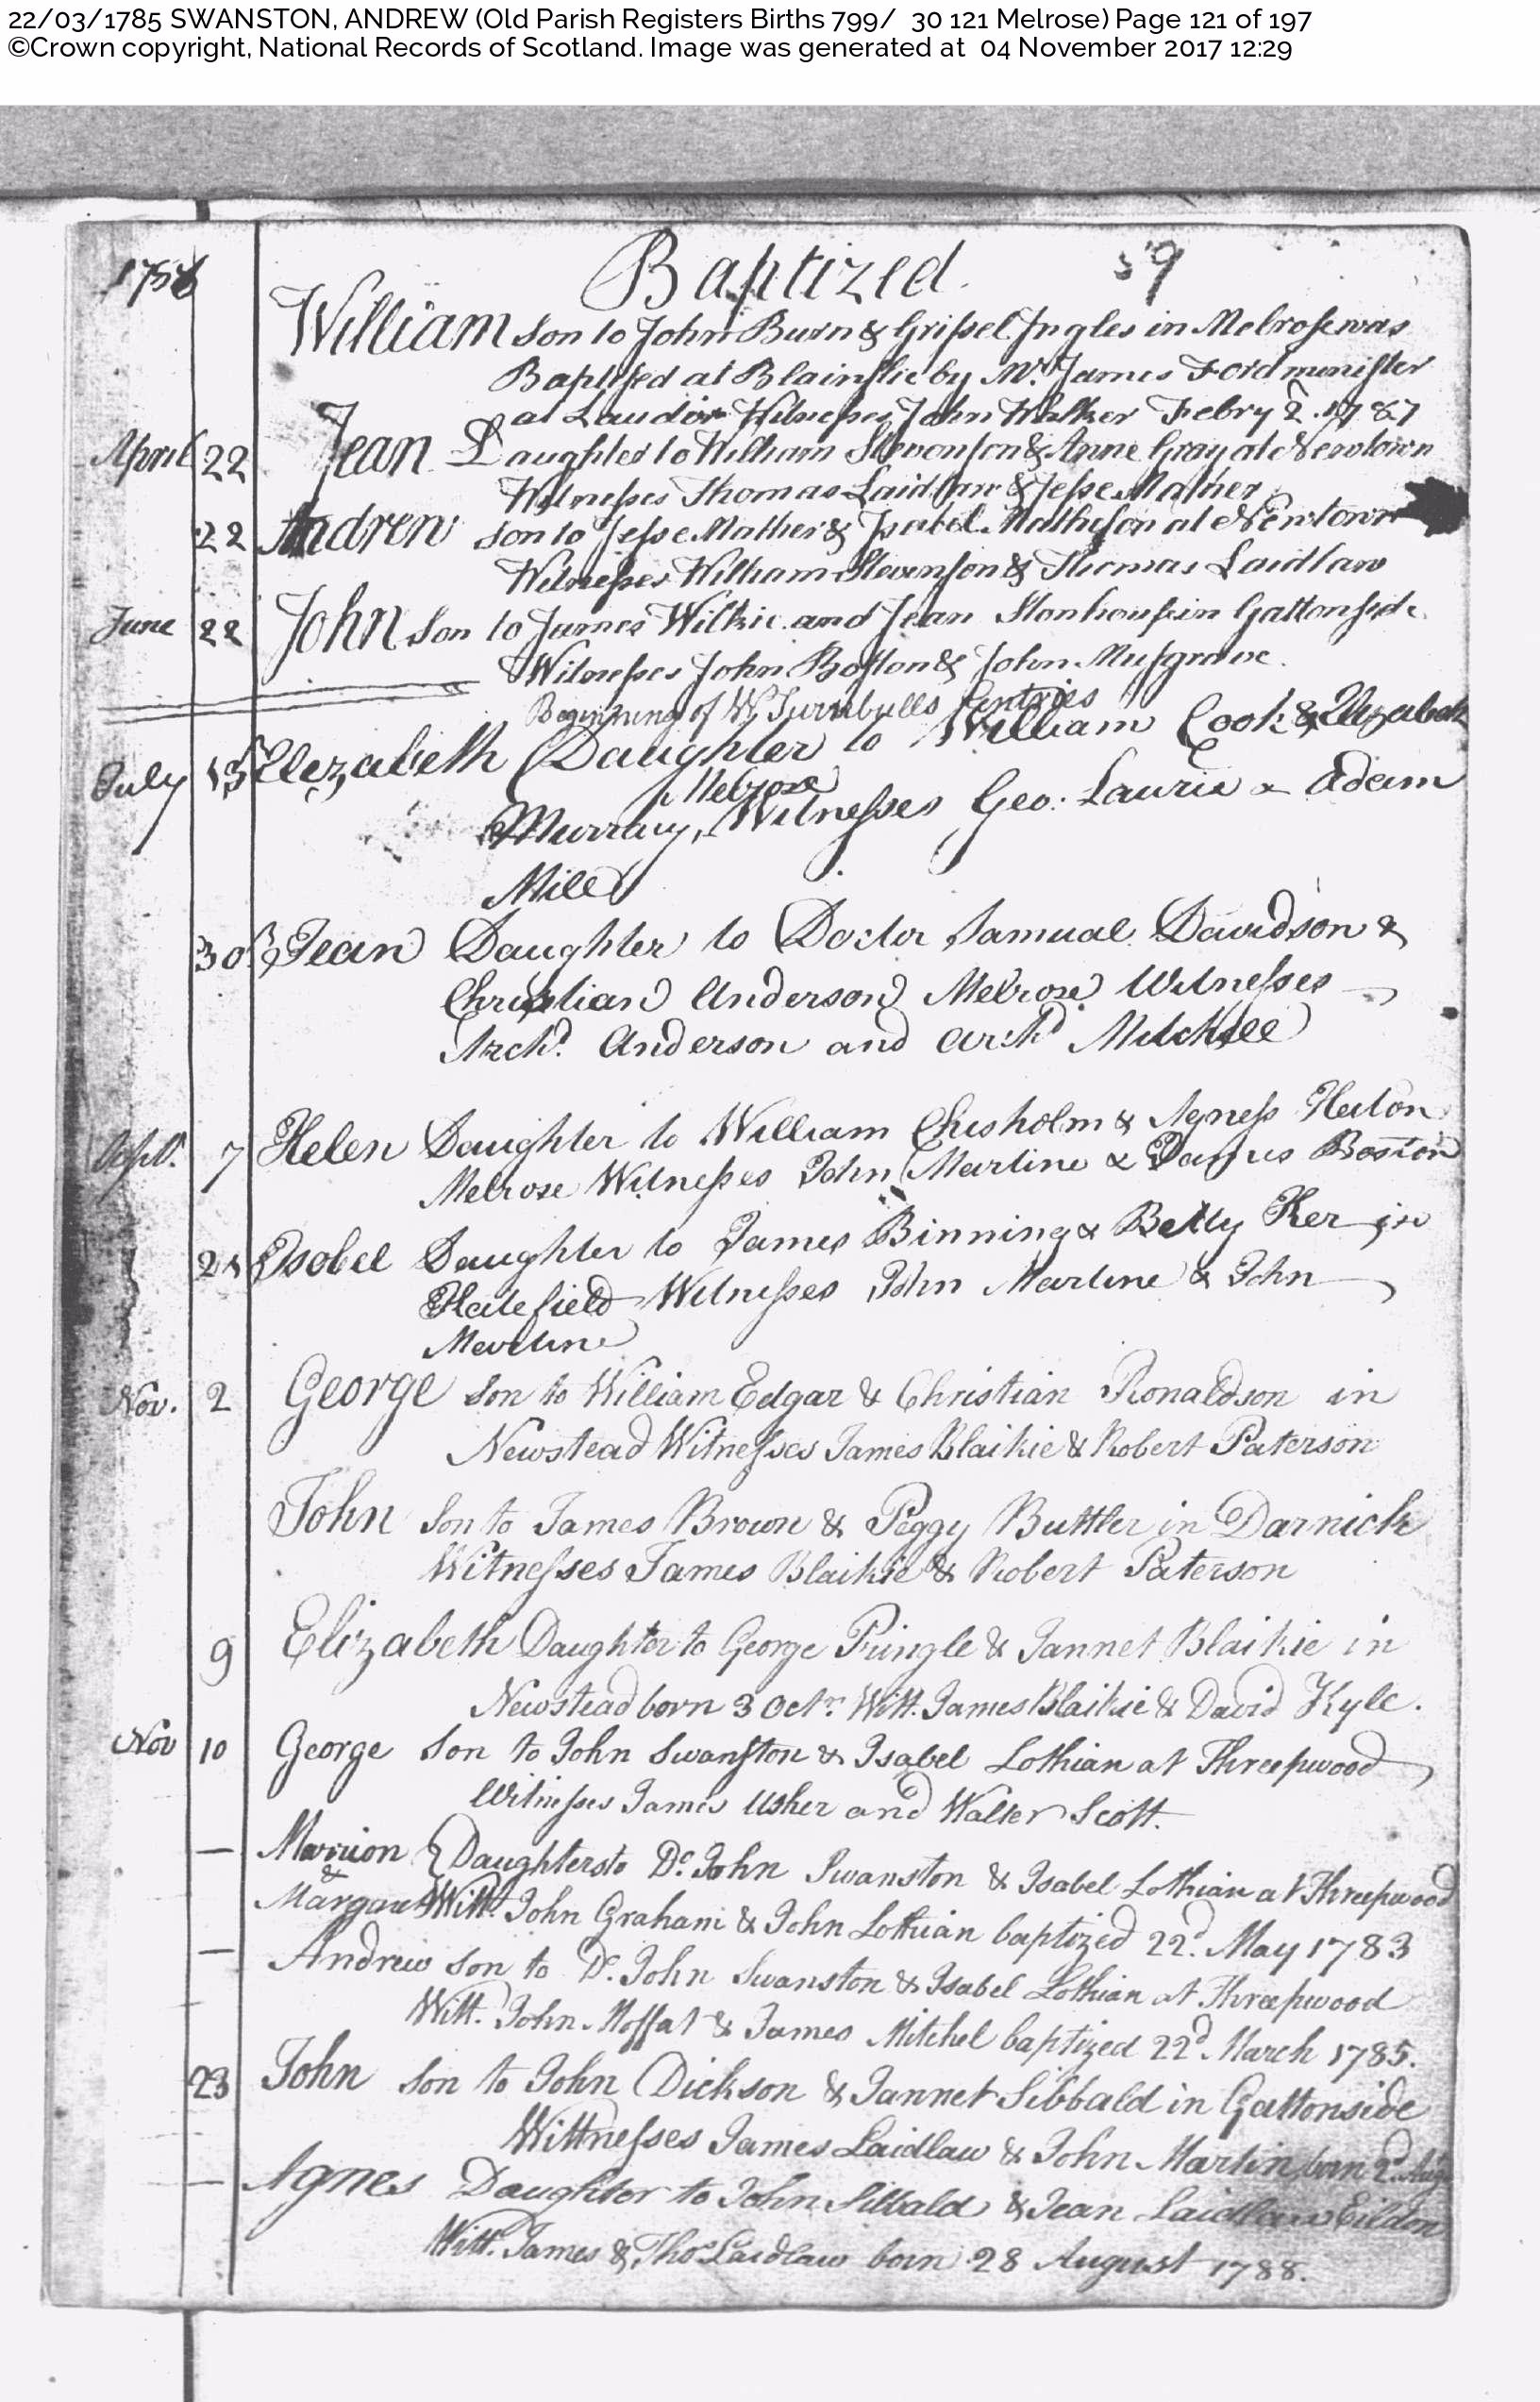 22/03/1785 SWANSTON, ANDREW (Old Parish Registers Births 799/ 30 121 Melrose) Page 121 of 197
©Crown copyright, National Records of Scotland. Image was generated at 04 November 2017 12:29
Baptized 59
William Son to John Burn & Grissel Ingles in Melrose was
Baptised at Blainslie by Mr. James Ford minister
at Lauder Witnesses John Walker Febry 2 1787
April 22 Jean Daughter to William Stevenson & Anne Gray at Newtown
Witnesses Thomas Laidlaw & Jesse Mather
22 Andrew son to Jesse Mather & Isabel Mathison at Newtown
Witnesses William Stevenson & Thomas Laidlaw
June 22 John Son to James Wilkie and Jean Stonhouse in Gattonside
Witnesses John Boston & John Musgrave.
Beginning of W. Turnbulls Entries
July 13 Elezabeth Daughter to William Cook & Elizabeth
Melrose
Murray, Witnesses Geo: Laurie & Adam
Mill
30 Jean Daughter to Doctor Samual Davidson &
Christian Anderson Melrose Witnesses
Archd. Anderson and Archd Mitchell
Sept. 7 Helen Daughter to William Chisholm & Agness Heiton
Melrose Witnesses John Martine & James Boston
21 Isobel Daughter to James Binning & Betty Ker in
Hatefield Witnesses John Martine & John
Martine
Nov. 2 George Son to William Edgar & Christian Ronaldson in
Newstead Witnesses James Blaikie & Robert Paterson
John Son to James Brown & Peggy Buttler in Darnick
Witnesses James Blaikie & Robert Paterson
9 Elizabeth Daughter to George Pringle & Jannet Blaikie in
Newstead born 3 Octr. Witt. James Blaikie & David Kyle.
Nov 10 George Son to John Swanston & Isabel Lothian at Threepwood
Witnesses James Usher and Walter Scott.
— Marrion { Daughters to Do. John Swanston & Isabel Lothian at Threepwood
&
Margaret Witt. John Graham & John Lothian baptized 22d. May 1783
— Andrew son to Do. John Swanston & Isabel Lothian at Threepwood
Witt. John Moffat & James Mitchel baptized 22d. March 1785.
23 John Son to John Dickson & Jannet Sibbald in Gattonside
Wittnesses James Laidlaw & John Martin born 2d. Aug
— Agnes Daughter to John Sibbald & Jean Laidlaw Eildon
Witt. James & Thos Laidlaw born 28 August 1788.